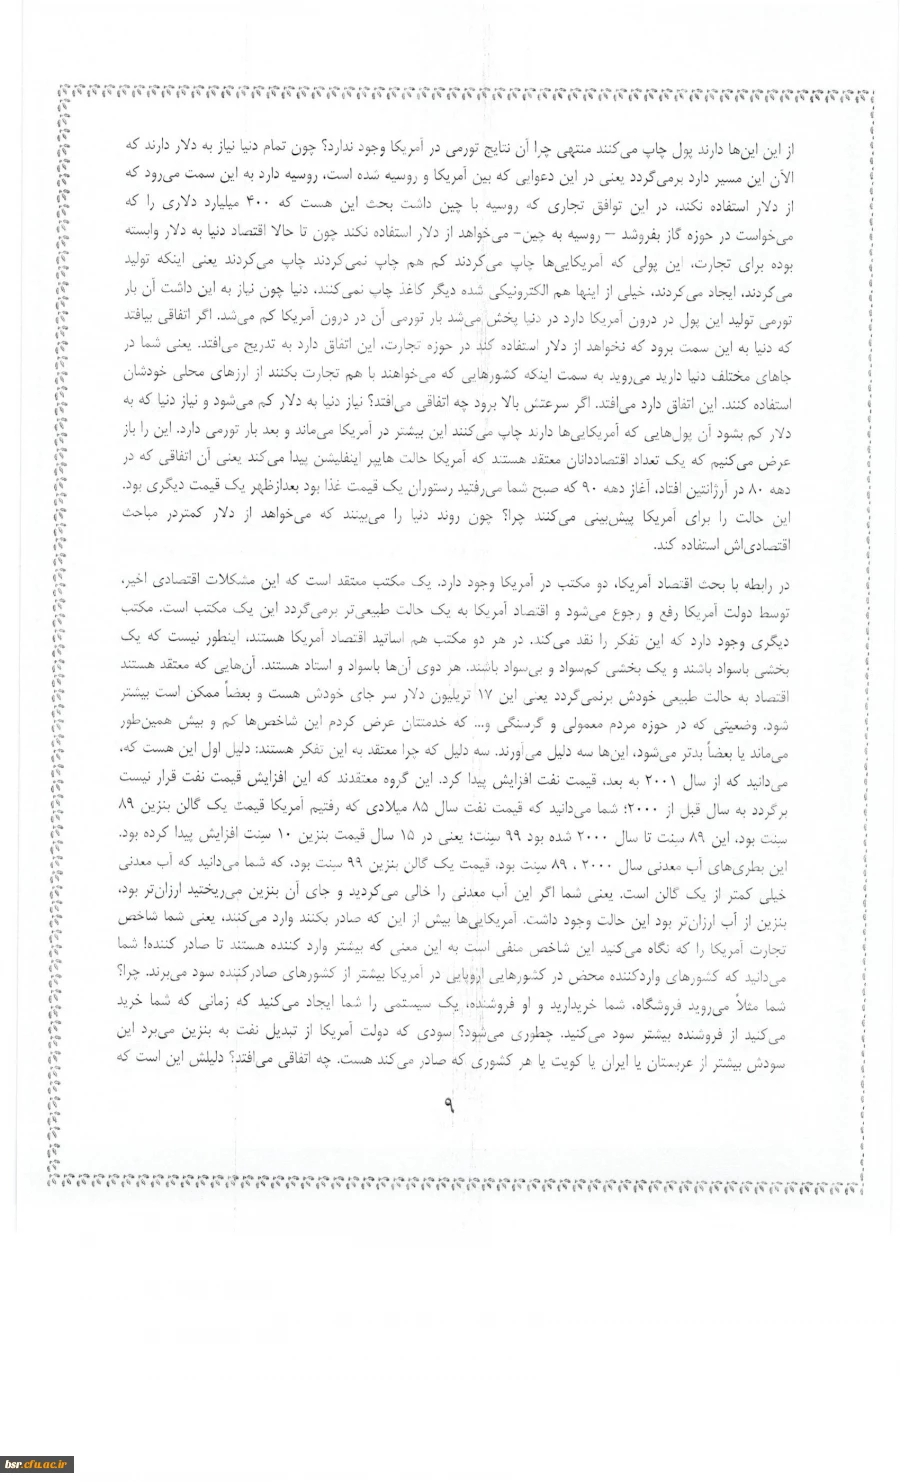 از این این‌ها دارند پول چاپ می‌کنند منتهی چرا آن نتایج تورمی در آمریکا وجود ندارد؟ چون تمام دنیا نیاز به دلار دارند که
الآن این مسیر دارد برمی‌گردد یعنی در این دعوایی که بین آمریکا و روسیه شده است، روسیه دارد به این سمت می‌رود که
از دلار استفاده نکند، در این توافق تجاری که روسیه با چین داشت بحث این هست که ۴۰۰ میلیارد دلاری را که
می‌خواست در حوزه گاز بفروشد – روسیه به چین- می‌خواهد از دلار استفاده نکند چون تا حالا اقتصاد دنیا به دلار وابسته
بوده برای تجارت، این پولی که آمریکایی‌ها چاپ می‌کردند کم هم چاپ نمی‌کردند چاپ می‌کردند یعنی اینکه تولید
می‌کردند، ایجاد می‌کردند، خیلی از اینها هم الکترونیکی شده دیگر کاغذ چاپ نمی‌کنند، دنیا چون نیاز به این داشت آن بار
تورمی تولید این پول در درون آمریکا دارد در دنیا پخش می‌شد بار تورمی آن در درون آمریکا کم می‌شد. اگر اتفاقی بیافتد
که دنیا به این سمت برود که نخواهد از دلار استفاده کند در حوزه تجارت، این اتفاق دارد به تدریج می‌افتد. یعنی شما در
جاهای مختلف دنیا دارید می‌روید به سمت اینکه کشورهایی که می‌خواهند با هم تجارت بکنند از ارزهای محلی خودشان
استفاده کنند. این اتفاق دارد می‌افتد. اگر سرعتش بالا برود چه اتفاقی می‌افتد؟ نیاز دنیا به دلار کم می‌شود و نیاز دنیا که به
دلار کم بشود آن پول‌هایی که آمریکایی‌ها دارند چاپ می‌کنند این بیشتر در آمریکا می‌ماند و بعد بار تورمی دارد. این را باز
عرض می‌کنیم که یک تعداد اقتصاددانان معتقد هستند که آمریکا حالت هایپر اینفلیشن پیدا می‌کند یعنی آن اتفاقی که در
دهه ۸۰ در آرژانتین افتاد، آغاز دهه ۹۰ که صبح شما می‌رفتید رستوران یک قیمت غذا بود بعدازظهر یک قیمت دیگری بود.
این حالت را برای آمریکا پیش‌بینی می‌کنند چرا؟ چون روند دنیا را می‌بینند که می‌خواهد از دلار کمتردر مباحث
اقتصادی‌اش استفاده کند.
در رابطه با بحث اقتصاد آمریکا، دو مکتب در آمریکا وجود دارد. یک مکتب معتقد است که این مشکلات اقتصادی اخیر،
توسط دولت آمریکا رفع و رجوع می‌شود و اقتصاد آمریکا به یک حالت طبیعی‌تر برمی‌گردد این یک مکتب است. مکتب
دیگری وجود دارد که این تفکر را نقد می‌کند. در هر دو مکتب هم اساتید اقتصاد آمریکا هستند، اینطور نیست که یک
بخشی باسواد باشند و یک بخشی کم‌سواد و بی‌سواد باشند. هر دوی آن‌ها باسواد و استاد هستند. آن‌هایی که معتقد هستند
اقتصاد به حالت طبیعی خودش برنمی‌گردد یعنی این ۱۷ تریلیون دلار سر جای خودش هست و بعضاً ممکن است بیشتر
شود. وضعیتی که در حوزه مردم معمولی و گرسنگی و... که خدمتتان عرض کردم این شاخص‌ها کم و بیش همین‌طور
می‌ماند یا بعضاً بدتر می‌شود، این‌ها سه دلیل می‌آورند. سه دلیل که چرا معتقد به این تفکر هستند: دلیل اول این هست که،
می‌دانید که از سال ۲۰۰۱ به بعد، قیمت نفت افزایش پیدا کرد. این گروه معتقدند که این افزایش قیمت نفت قرار نیست
برگردد به سال قبل از ۲۰۰۰؛ شما می‌دانید که قیمت نفت سال ۸۵ میلادی که رفتیم آمریکا قیمت یک گالن بنزین ۸۹
سِنت بود، این ۸۹ سِنت تا سال ۲۰۰۰ شده بود ۹۹ سِنت؛ یعنی در ۱۵ سال قیمت بنزین ۱۰ سِنت افزایش پیدا کرده بود.
این بطری‌های آب معدنی سال ۲۰۰۰ ، ۸۹ سِنت بود، قیمت یک گالن بنزین ۹۹ سِنت بود، که شما می‌دانید که آب معدنی
خیلی کمتر از یک گالن است. یعنی شما اگر این آب معدنی را خالی می‌کردید و جای آن بنزین می‌ریختید ارزان‌تر بود،
بنزین از آب ارزان‌تر بود این حالت وجود داشت. آمریکایی‌ها بیش از این که صادر بکنند وارد می‌کنند، یعنی شما شاخص
تجارت آمریکا را که نگاه می‌کنید این شاخص منفی است به این معنی که بیشتر وارد کننده هستند تا صادر کننده! شما
می‌دانید که کشورهای واردکننده محض در کشورهایی اروپایی در آمریکا بیشتر از کشورهای صادرکننده سود می‌برند. چرا؟
شما مثلاً می‌روید فروشگاه، شما خریدارید و او فروشنده، یک سیستمی را شما ایجاد می‌کنید که زمانی که شما خرید
می‌کنید از فروشنده بیشتر سود می‌کنید. چطوری می‌شود؟ سودی که دولت آمریکا از تبدیل نفت به بنزین می‌برد این
سودش بیشتر از عربستان یا ایران یا کویت یا هر کشوری که صادر می‌کند هست. چه اتفاقی می‌افتد؟ دلیلش این است که
۹
bsr.cfu.ac.ir